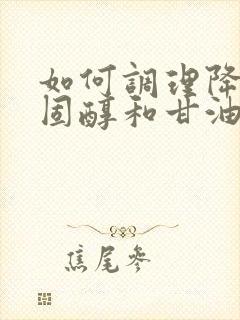 如何調理降
固醇和甘油
焦尾參